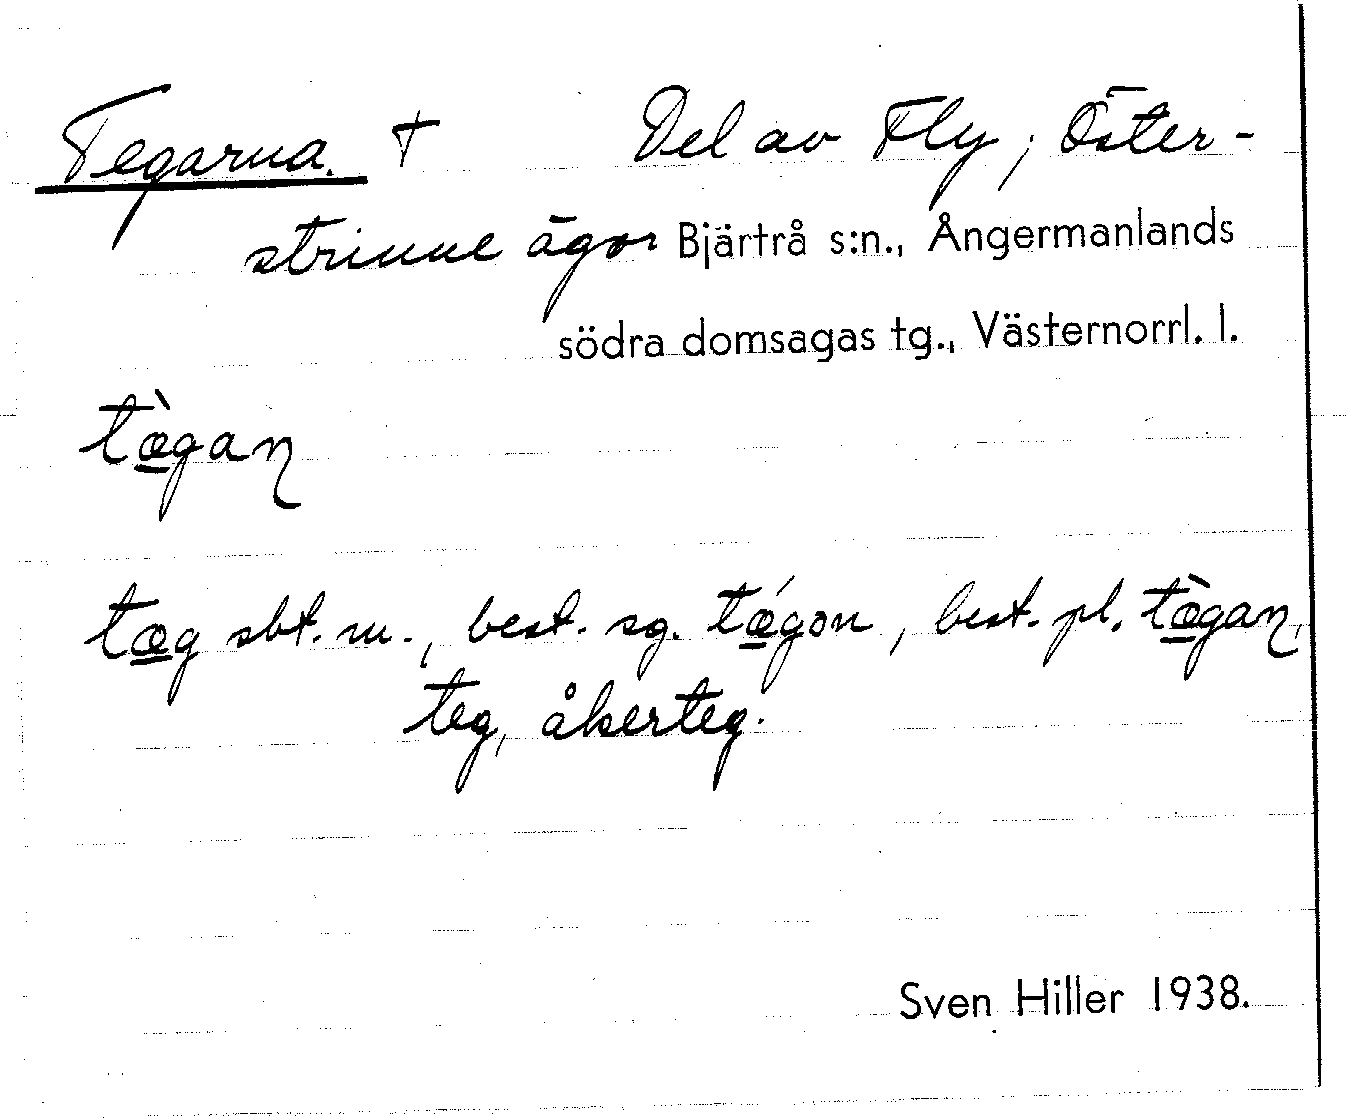 Tegarna. † Del av Fly, Öster-
strinne ägor Bjärtrå s:n., Ångermanlands
södra domsagas tg., Västernorrl. l.
tæ̲̀gaɳ
tæ̲g sbt. m., best. sg. tǽ̲gon, best. pl. tæ̲̀gaɳ,
teg, åkerteg.
Sven Hiller 1938.